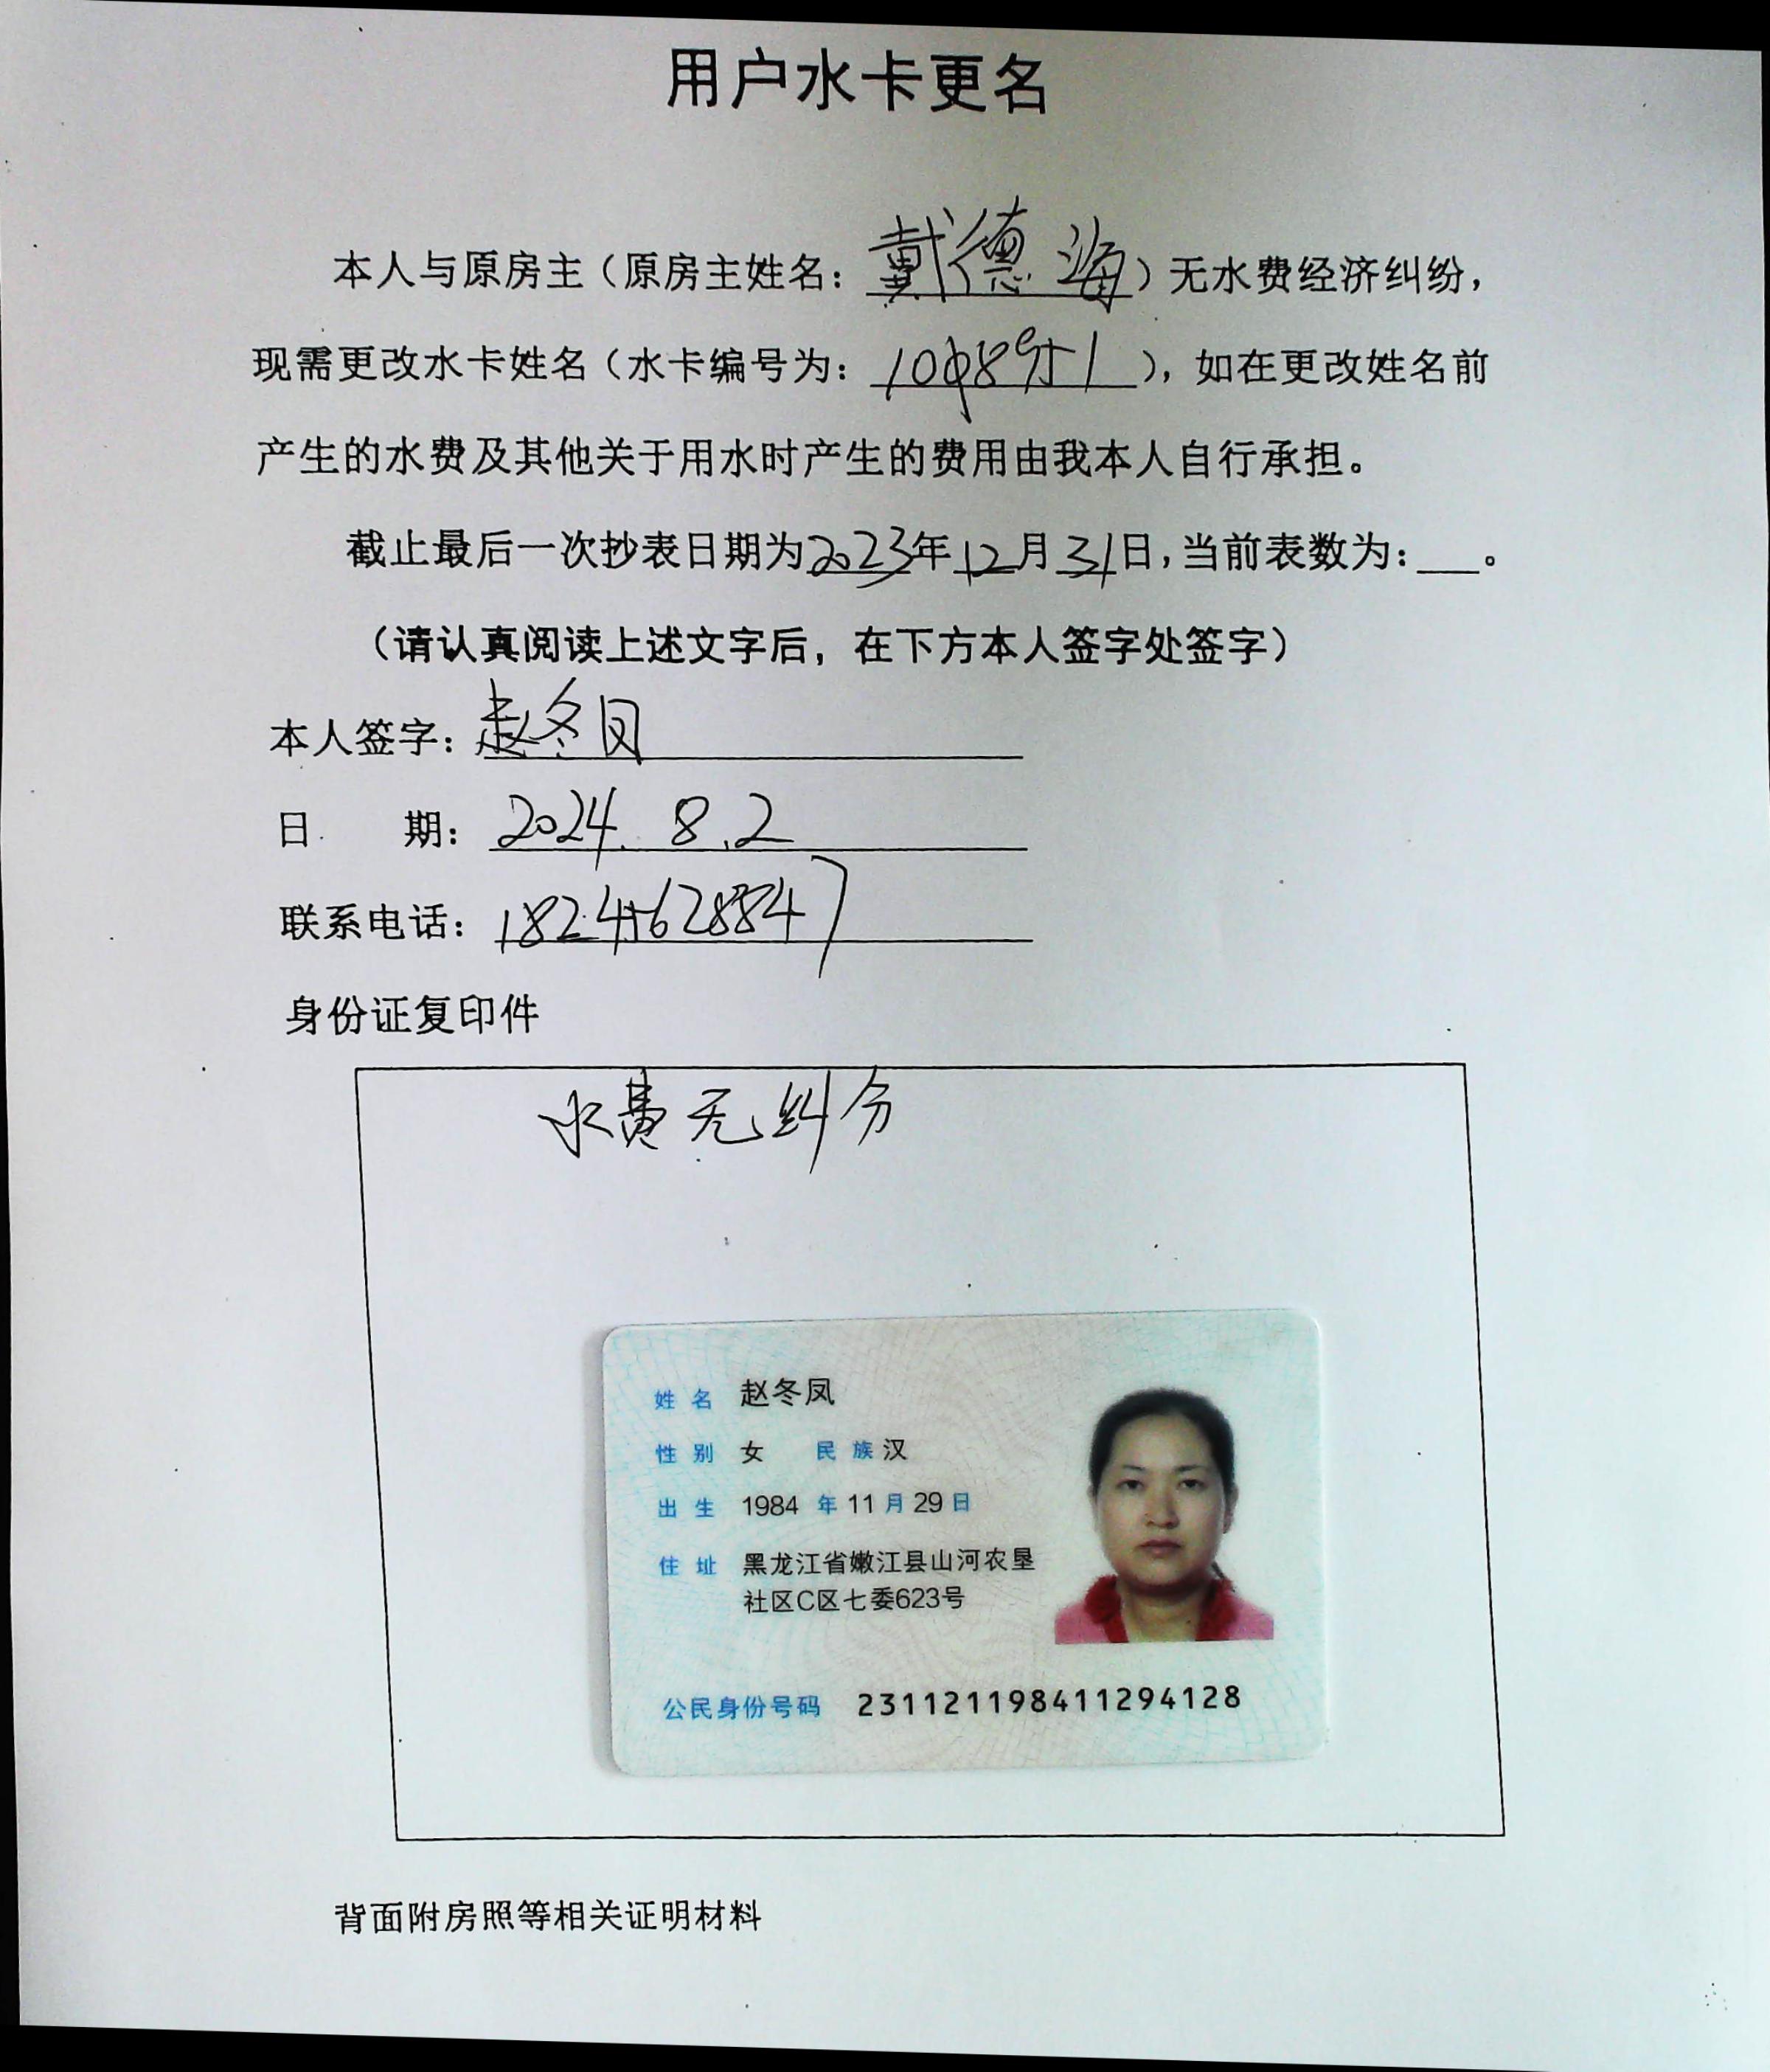 用户水卡更名
本人与原房主（原房主姓名：戴德海）无水费经济纠纷，
现需更改水卡姓名（水卡编号为：），如在更改姓名前
产生的水费及其他关于用水时产生的费用由我本人自行承担。
截止最后一次抄表日期为2023年12月31日，当前表数为：___。
（请认真阅读上述文字后，在下方本人签字处签字）
本人签字：赵冬凤
日 期：2024.8.2
联系电话：18245628847
身份证复印件
水费无纠分
姓名 赵冬凤
性别 女 民族 汉
出生 1984 年 11 月 29 日
住址 黑龙江省嫩江县山河农垦
社区C区七委623号
公民身份号码 231121198411294128
背面附房照等相关证明材料